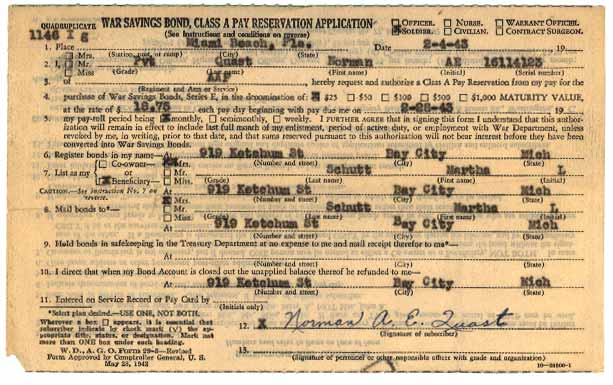 QUADRUPLICATE WAR SAVINGS BOND, CLASS A PAY RESERVATION APPLICATION
(See instructions and conditions on reverse)
OFFICER. NURSE. WARRANT OFFICER.
X SOLDIER. CIVILIAN. CONTRACT SURGEON.
1146 I g
1. Place Miami Beach, Fla. Date 2-4-43 , 19
(Station, post, or camp)
2. I, Mr. Mrs. Miss Pvt Quast Norman AE 16114123
(Grade) (Last name) (First name) (Initial) (Serial number)
3. of AAF , hereby request and authorize a Class A Pay Reservation from my pay for the
(Regiment and Arm or Service)
4. purchase of War Savings Bonds, Series E, in the denomination of: X $25 $50 $100 $500 $1,000 MATURITY VALUE,
at the rate of $ 18.75 each pay day beginning with pay due me on 2-28-43 , 19
5. my pay-roll period being X monthly, semimonthly, weekly. I FURTHER AGREE that in signing this form I understand that this authorization will remain in effect to include last full month of my enlistment, period of active duty, or employment with War Department, unless
revoked by me, in writing, prior to that date, and that sums reserved pursuant to this authorization will not bear interest before they have been
converted into War Savings Bonds.
6. Register bonds in my name—At 919 Ketchum St Bay City Mich
(Number and street) (City) (State)
7. List as my Co-owner— X Beneficiary— Mr. Mrs. Miss Schutt Martha L
(Grade) (Last name) (First name) (Initial)
CAUTION.—See instruction No. 7 on reverse. At 919 Ketchum St Bay City Mich
(Number and street) (City) (State)
8. Mail bonds to*— Mr. X Mrs. Miss. Schutt Martha L
(Grade) (Last name) (First name) (Initial)
At 919 Ketchum St Bay City Mich
(Number and street) (City) (State)
9. Hold bonds in safekeeping in the Treasury Department at no expense to me and mail receipt therefor to me*—
At
(Number and street) (City) (State)
10. I direct that when my Bond Account is closed out the unapplied balance thereof be refunded to me—
At 919 Ketchum St Bay City Mich
(Number and street) (City) (State)
11. Entered on Service Record or Pay Card by
(Initials only)
*Select plan desired.—USE ONE, NOT BOTH.
Wherever a box appears, it is essential that
subscriber indicate by check mark (V) the appropriate title, status, or designation. Mark not
more than ONE box under each heading.
12. X Norman A. E. Quast
(Signature of subscriber)
W. D., A. G. O. Form 29-5—Revised
Form Approved by Comptroller General, U. S.
May 25, 1942
13.
(Signature of personnel or other responsible officer with grade and organization)